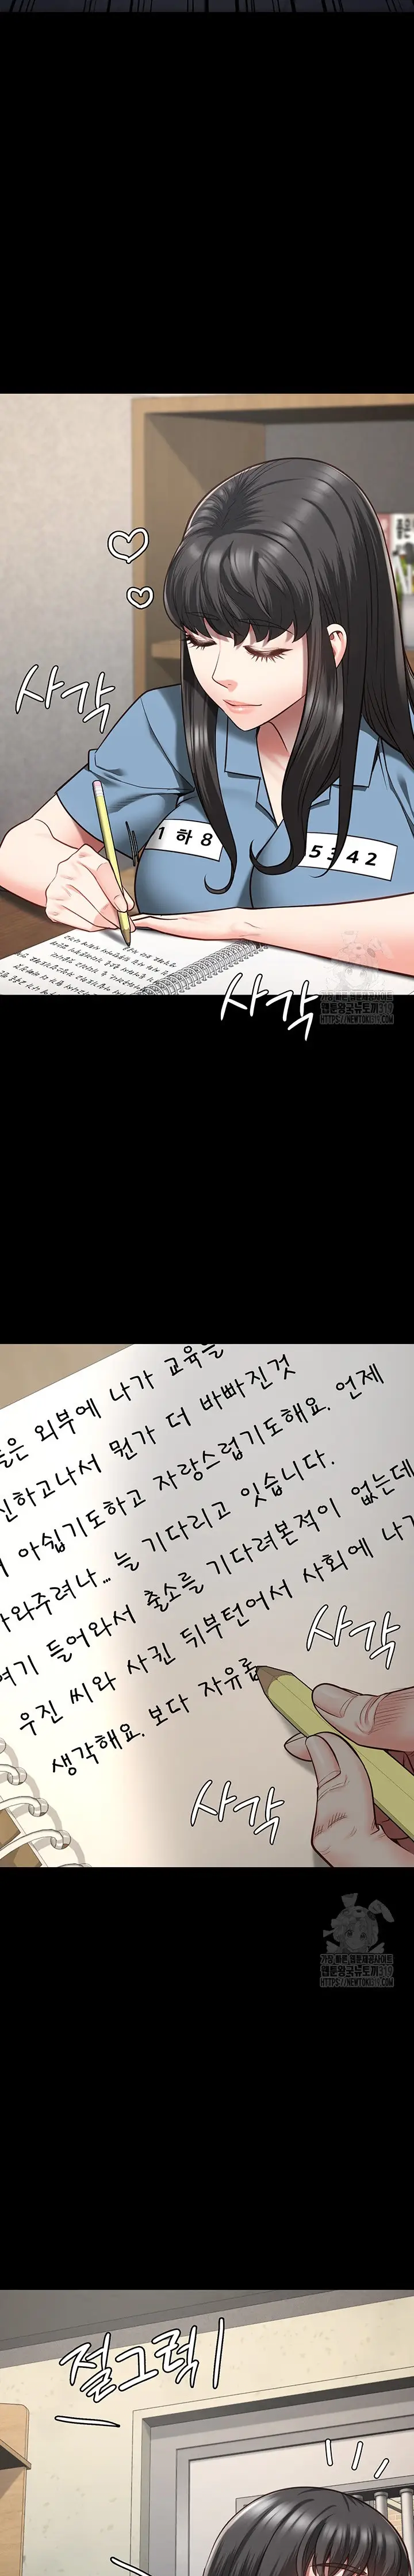 사각
1하8
5342
사각
가장 빠른 웹툰제공사이트
웹툰왕국뉴토끼319
HTTPS://NEWTOKI319.COM
들은 외부에 나가 교육을
신하고나서 뭔가 더 바빠진것
아쉽기도하고 자랑스럽기도해요. 언제
와주려나... 늘 기다리고 잇습니다.
여기 들어와서 출소를 기다려본적이 없는데
우진 씨와 사귄 뒤부턴어서 사회에 나가
생각해요. 보다 자유롭
사각
사각
가장 빠른 웹툰제공사이트
웹툰왕국뉴토끼319
HTTPS://NEWTOKI319.COM
절그럭